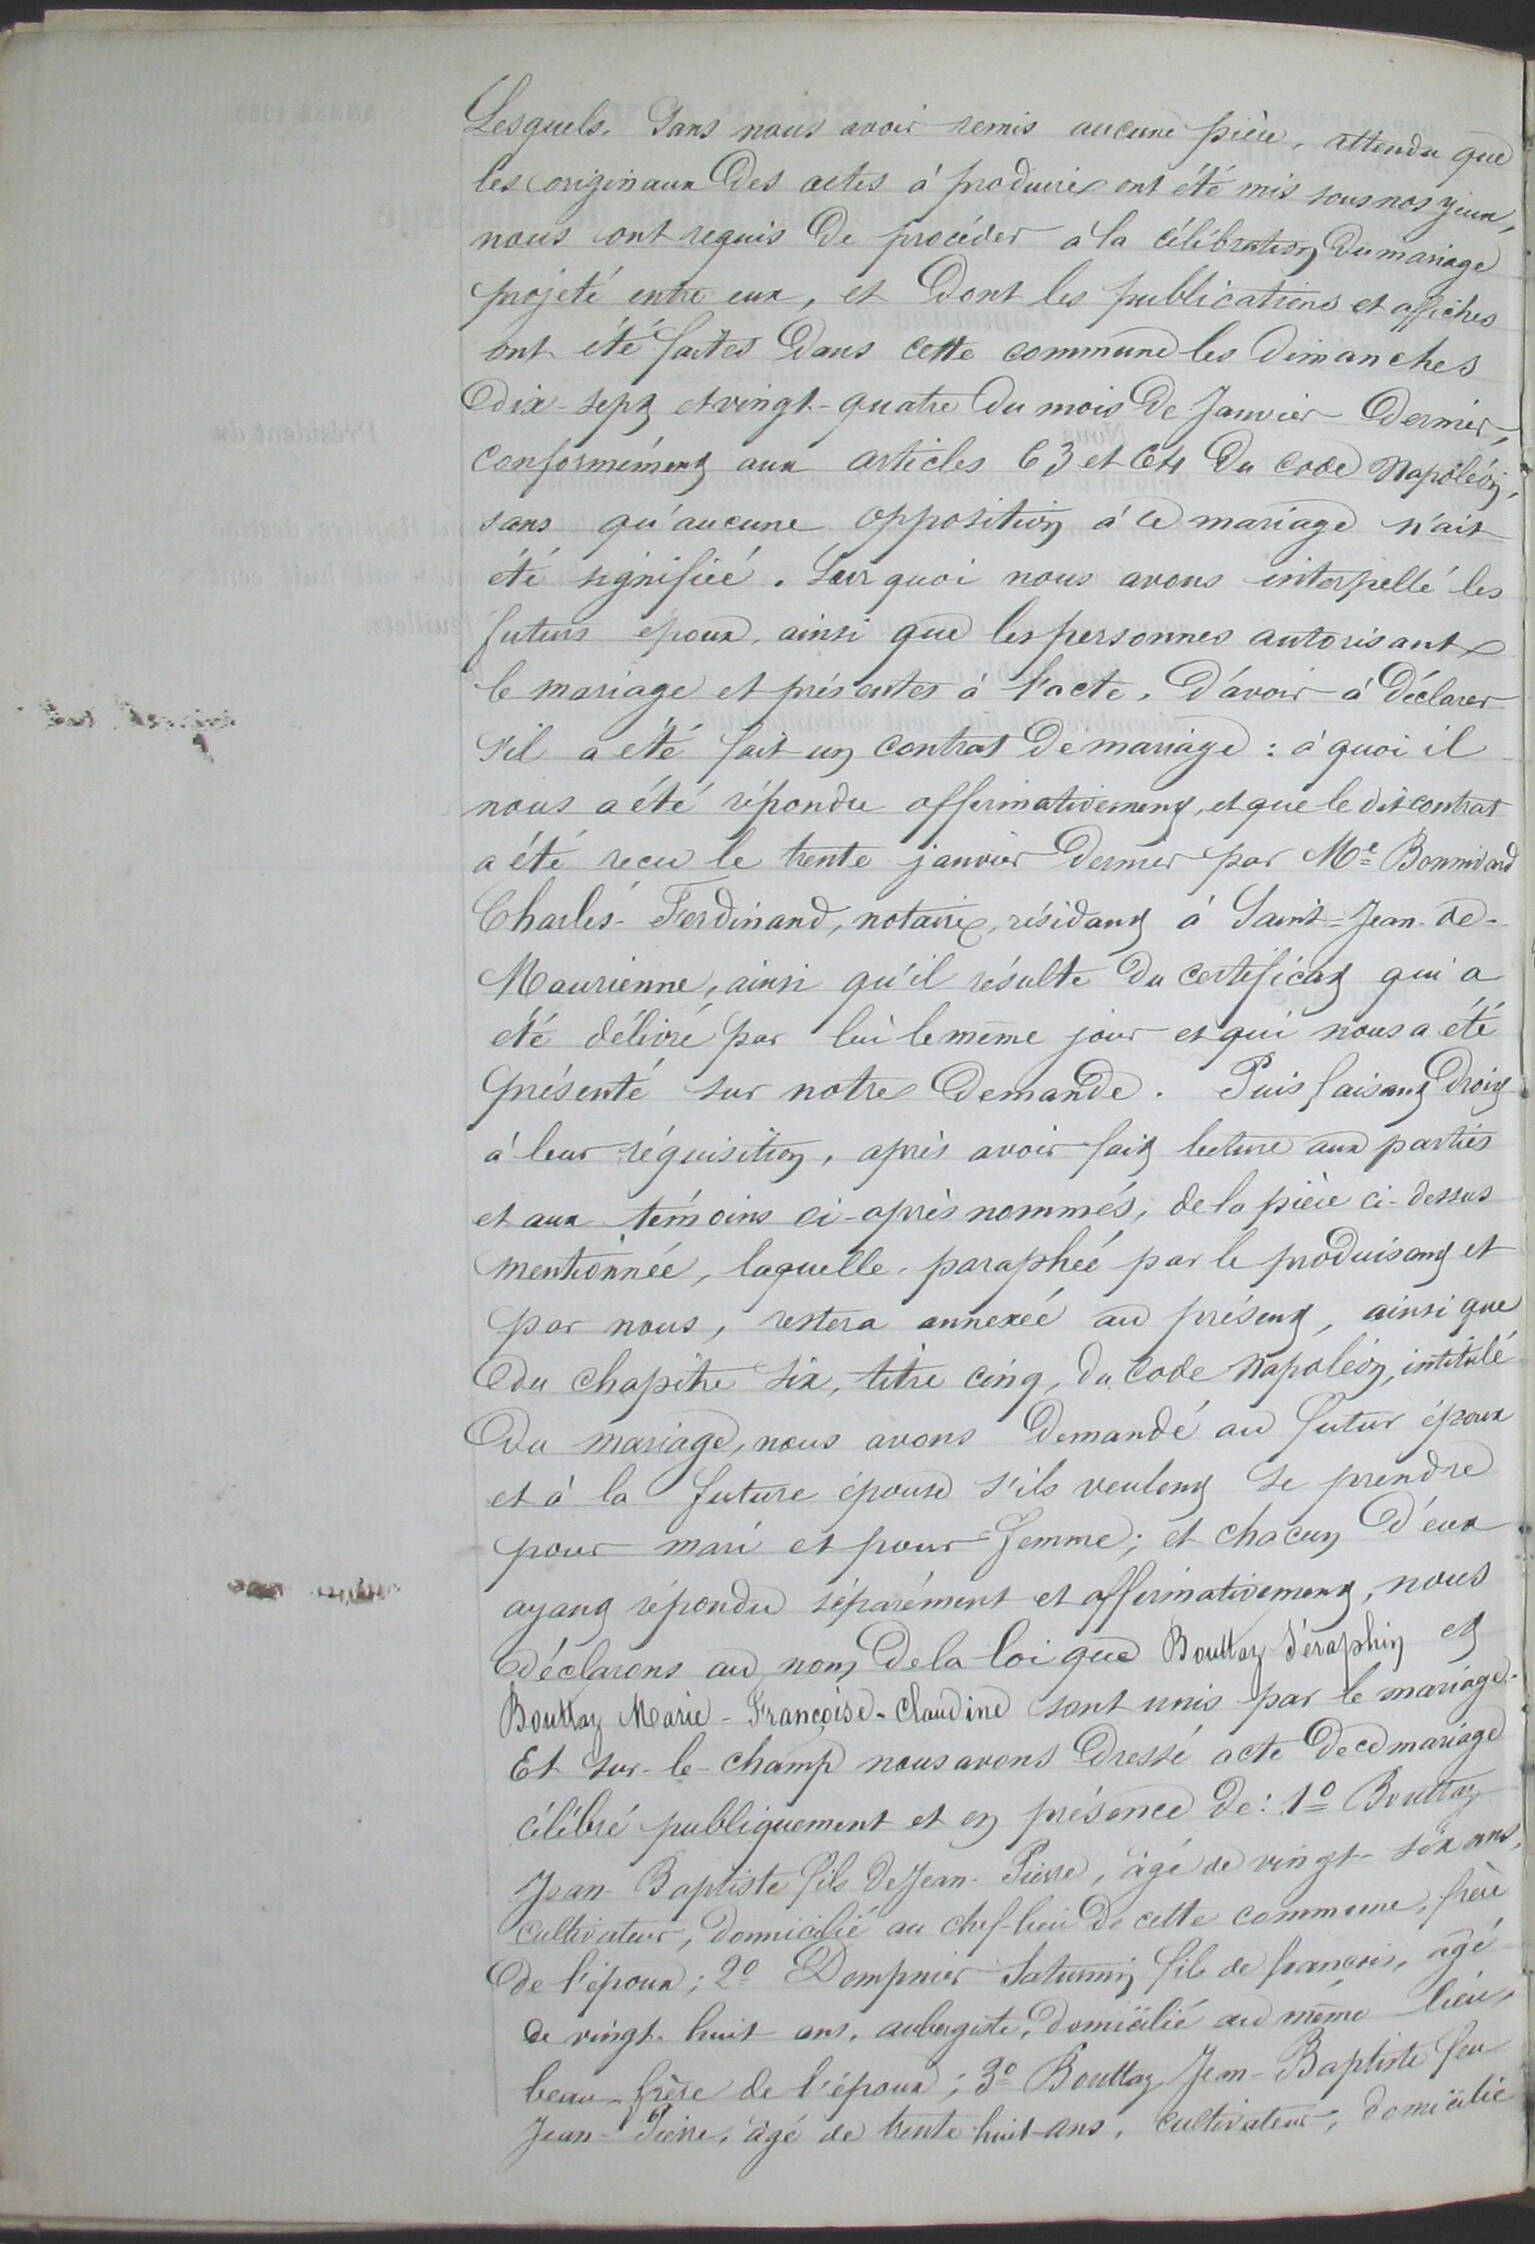 Lesquels, sans nous avoir remis aucune pièce, attendu que
les originaux des actes à produire ont été mis sous nos yeux,
nous ont requis de procéder à la célébration du mariage
projeté entre eux, et dont les publications et affiches
ont été faites dans cette commune les dimanches
dix-sept et vingt-quatre du mois de Janvier dernier,
conformément aux articles 63 et 64 du code Napoléon,
sans qu'aucune opposition à ce mariage n'ait
été signifiée. Sur quoi nous avons interpellé les
futurs époux, ainsi que les personnes autorisant
le mariage et présentes à l'acte, d'avoir à déclarer
s'il a été fait un contrat de mariage : à quoi il
nous a été répondu affirmativement, et que le dit contrat
a été recu le trente janvier dernier par Me Bonnivard
Charles-Ferdinand, notaire, résidant à Saint-Jean-de-
Maurienne, ainsi qu'il résulte du certificat qui a
été délivré par lui le même jour et qui nous a été
présenté sur notre demande. Puis faisant droit
à leur réquisition, après avoir fait lecture aux parties
et aux témoins ci-après nommés, de la pièce ci-dessus
mentionnée, laquelle, paraphée par le produisant et
par nous, restera annexée au présent, ainsi que
du chapitre six, titre cinq, du code Napoléon, intitulé
du mariage, nous avons demandé au futur époux
et à la future épouse s'ils veulent se prendre
pour mari et pour femme ; et chacun d'eux
ayant répondu séparément et affirmativement, nous
déclarons au nom de la loi que Bouttaz Séraphin et
Bouttaz Marie-Françoise-Claudine sont unis par le mariage.
Et sur-le-champ nous avons dressé acte de ce mariage
célébré publiquement et en présence de : 1o Bouttaz
Jean-Baptiste fils de Jean-Pierre, âgé de vingt-six ans,
cultivateur, domicilié au chef-lieu de cette commune, frère
de l'époux ; 2o Dompnier Saturnin fils de françois, âgé
de vingt-huit ans, aubergiste, domicilié au même lieu,
beau-frère de l'époux ; 3o Bouttaz Jean-Baptiste feu
Jean-Pierre, âgé de trente-huit ans, cultivateur, domicilié